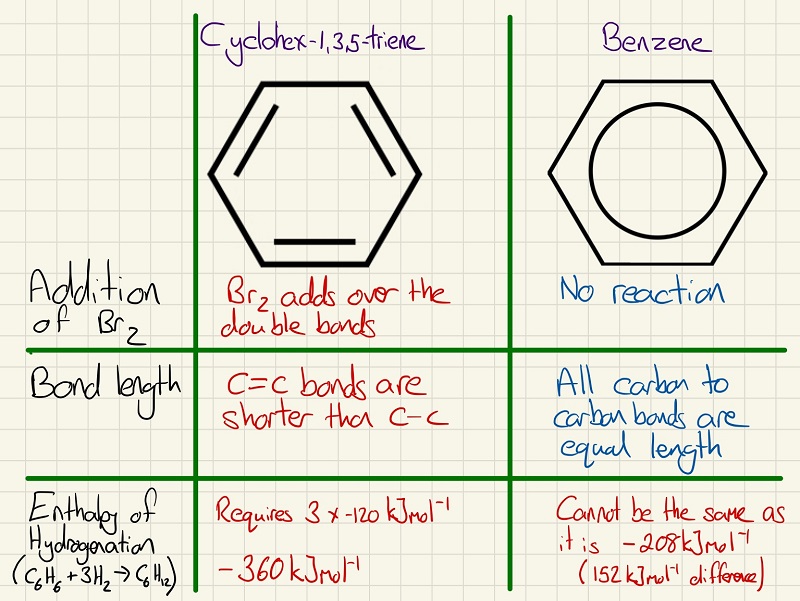 Cyclohex-1,3,5-triene
Benzene
Addition
of Br₂
Br₂ adds over the
double bonds
No reaction
Bond length
C=C bonds are
shorter than C-C
All carbon to
carbon bonds are
equal length
Enthalpy of
Hydrogenation
(C₆H₆ + 3H₂ → C₆H₁₂)
Requires 3 x -120 kJmol⁻¹
-360 kJmol⁻¹
Cannot be the same as
it is -208kJmol⁻¹
(152 kJmol⁻¹ difference)